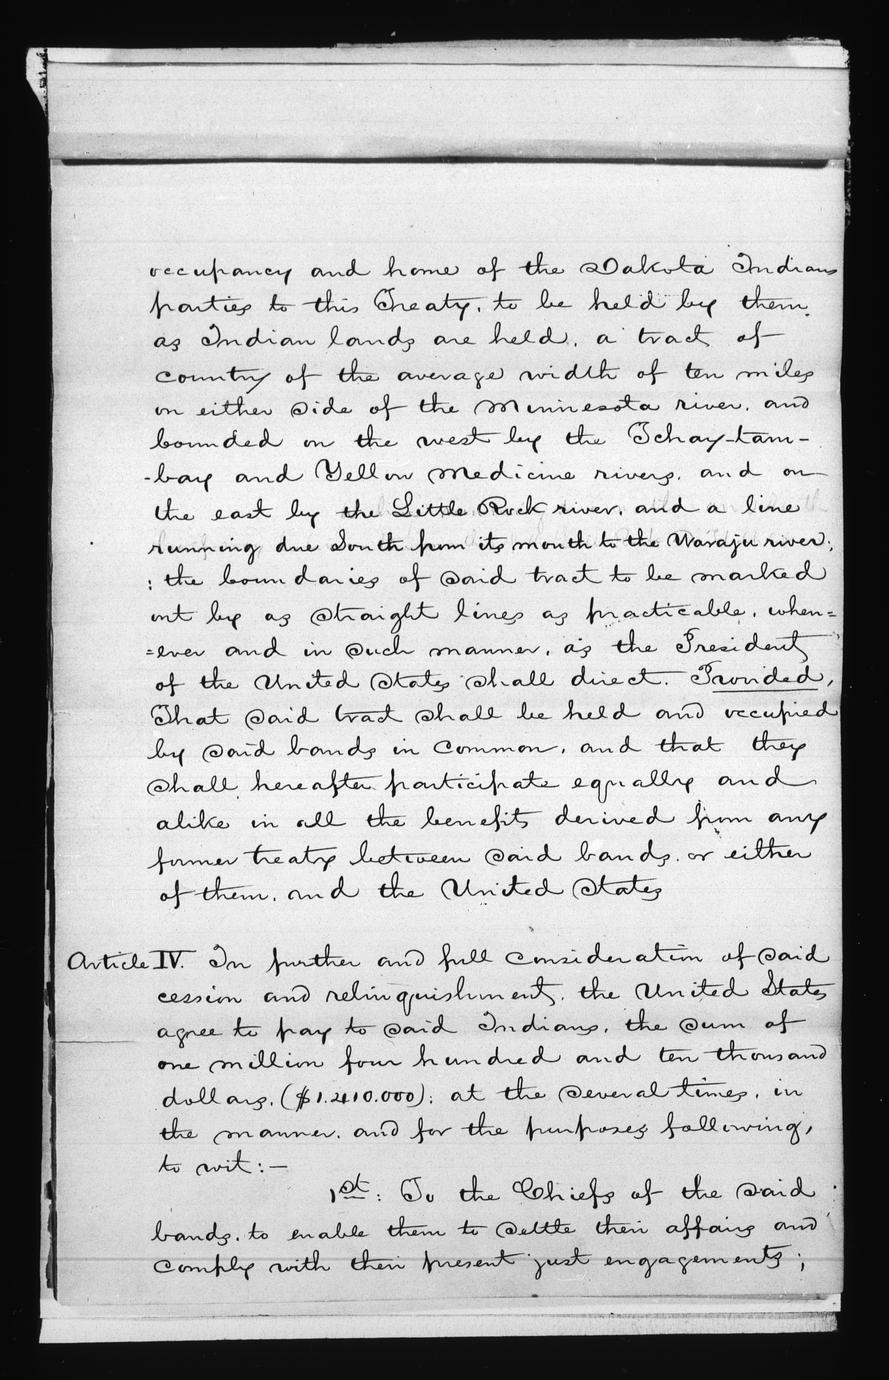 occupancy and home of the Dakota Indians
parties to this Treaty, to be held by them
as Indian lands are held, a tract of
country of the average width of ten miles
on either side of the Minnesota river, and
bounded on the west by the Tchay-tam-
-bay and Yellow Medicine rivers, and on
the east by the Little Rock river, and a line
running due South from its mouth to the Waraju river;
: the boundaries of said tract to be marked
out by as straight lines as practicable, when=
=ever and in such manner, as the President
of the United States shall direct. Provided,
That said tract shall be held and occupied
by said bands in common, and that they
shall hereafter participate equally and
alike in all the benefits derived from any
former treaty between said bands, or either
of them, and the United States
Article IV. In further and full consideration of said
cession and relinquishment, the United States
agree to pay to said Indians, the sum of
one million four hundred and ten thousand
dollars, ($1.410.000): at the several times, in
the manner, and for the purposes following,
to wit:—
1st: To the Chiefs of the said
bands, to enable them to settle their affairs and
comply with their present just engagements;